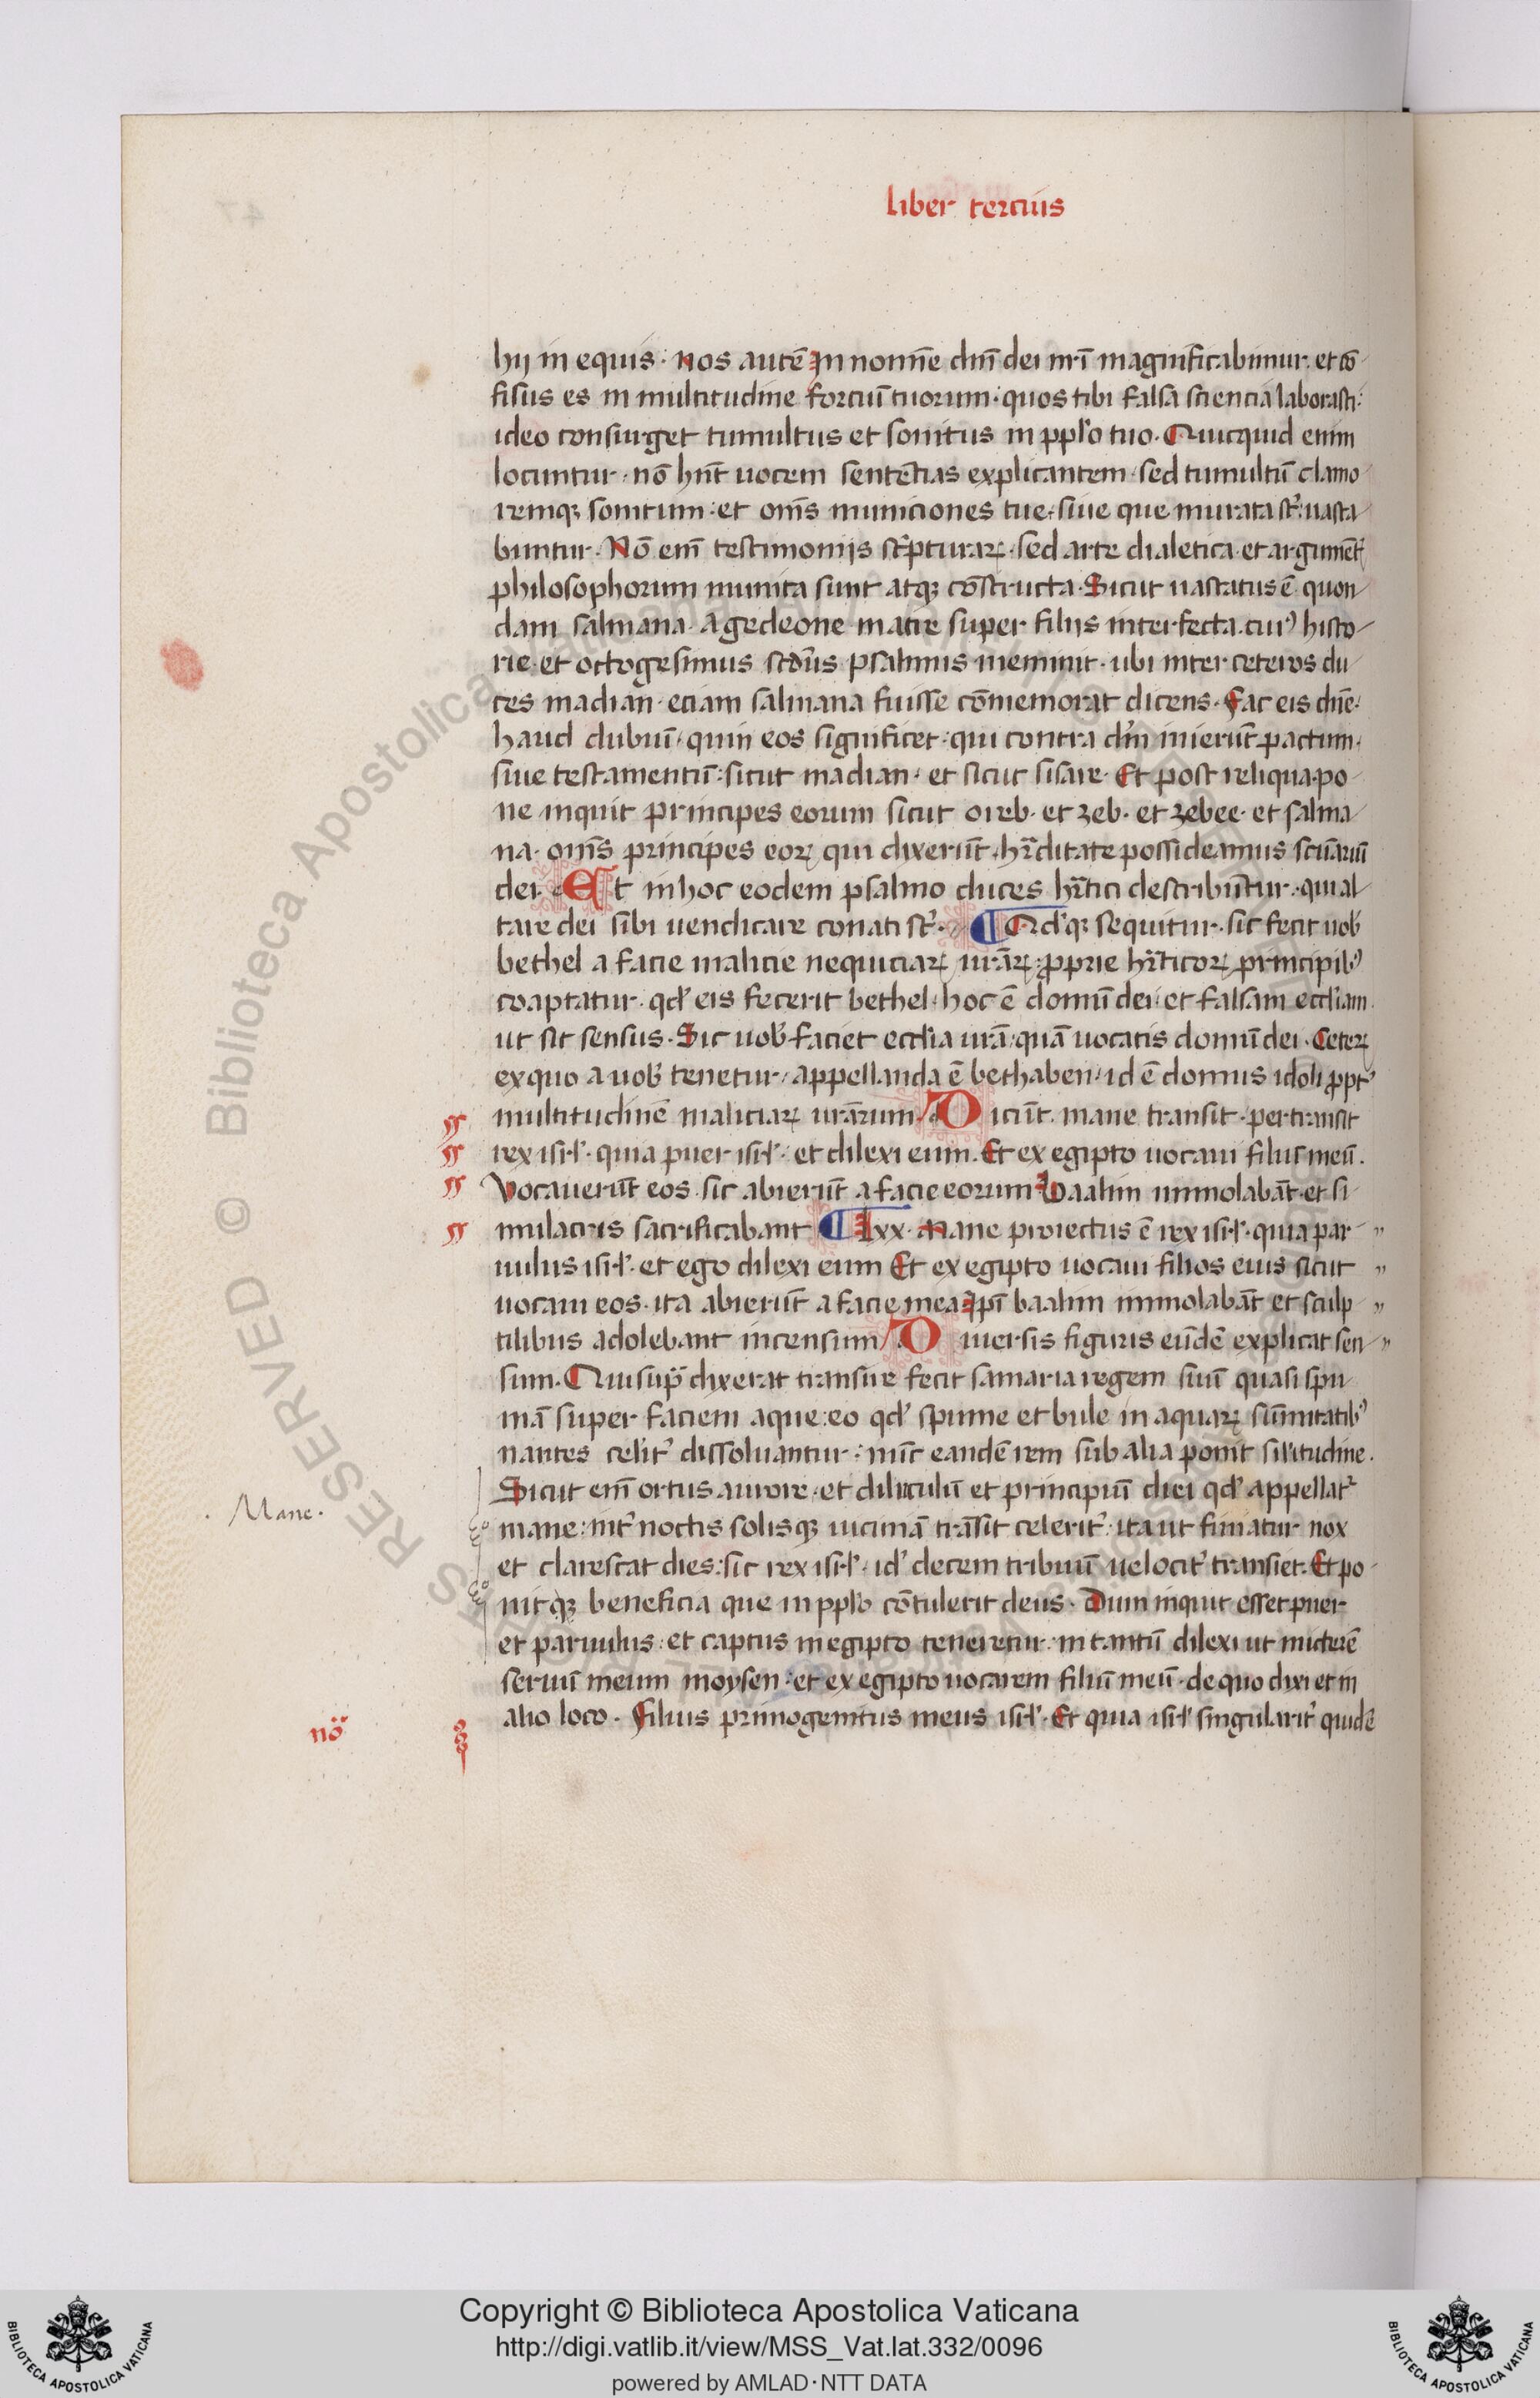 liber tercius
hij in equis. nos autē in nomīe dnī dei nr̄i magnificabimur. et cō
fisus es in multitudine forciū tuorum. quos tibi falsa sciencia laborasti:
ideo consurget tumultus et sonitus in ppl'o tuo. Quicquid enim
locuntur. nō hn̄t uocem sentēcias explicantem. sed tumultū clamo
remqꝫ sonitum: et om̄s municiones tue. siue que murata st̄: uasta
buntur. Nō em̄ testimonijs sc̄pturaꝝ. sed arte dialetica. et argumēt
philosophorum munita sunt atqꝫ cōstructa. Sicut uastatus ē quon
dam salmana. a gedeone matre super filijs interfecta. cuiꝰ histo
rie. et octogesimus scdūs psalmus meminit. ubi inter ceteros du
ces madian. eciam salmana fuisse cōmemorat dicens. Fac eis dn̄e.
haud dubiū. quin eos significet. qui contra dm̄ inierūt pactum.
siue testamentū: sicut madian. et sicut sisare. Et post reliqua. po
ne inquit principes eorum sicut oreb. et zeb. et zebee. et salma
na. om̄s principes eoꝝ qui dixerūt. hr̄ditate possideamus sctūariū
dei. Et in hoc eodem psalmo duces hr̄tici describūtur. qui al
tare dei sibi uendicare conati st̄. Qd'qꝫ sequitur. sic fecit uob'
bethel a facie malicie nequiciaꝝ ur̄aꝝ: ꝓprie hr̄ticoꝝ principibꝰ
coaptatur. qd' eis fecerit bethel. hoc ē domū dei. et falsam eccl'iam.
ut sit sensus. Sic uob' faciet eccl'ia ur̄a. quā uocatis domū dei. Ceteꝝ
ex quo a uob' tenetur. appellanda ē bethaben. id ē domus idoli ꝓpt'
multitudinē maliciaꝝ ur̄arum. Diciūt. mane transit. pertransit
rex isrl'. quia puer isrl'. et dilexi eum. Et ex egipto uocaui filiū meū.
Vocauerūt eos. sic abierūt a facie eorum. Baalim immolabāt. et si
mulacris sacrificabant. lxx. Mane proiectus ē rex isrl'. quia par
uulus isrl'. et ego dilexi eum. Et ex egipto uocaui filios eius sicut
uocaui eos. ita abierūt a facie mea. ipi baalim immolabāt et sculp
tilibus adolebant incensum. Diuersis figuris eūdē explicat sen
sum. Qui sup̄ dixerat transire fecit samaria regem suū quasi spu
mā super faciem aque: eo qd' spume et bule in aquaꝝ sūmitatibꝰ
nantes celit' dissoluantur: nūc eandē rem sub alia ponit sil'itudine.
Sicut em̄ ortus aurore. et diluculū et principiū diei qd' appellat'
mane: int' noctis solisqꝫ uicinā trāsit celerit': ita ut finiatur nox
et clarescat dies: sic rex isrl'. id' decem tribuū uelocit' transiet. Et po
nitqꝫ beneficia que in ppl'o cōtulerit deus. Dum inquit esset puer
et paruulus. et captus in egipto teneretur. in tantū dilexi ut mitterē
seruū meum moysen. et ex egipto uocarem filiū meū. de quo dixi et in
alio loco. Filius primogenitus meus isrl'. Et quia isrl' singularit' quidē
Mane.
nō
Copyright © Biblioteca Apostolica Vaticana
http://digi.vatlib.it/view/MSS_Vat.lat.332/0096
powered by AMLAD·NTT DATA
BIBLIOTECA APOSTOLICA VATICANA
BIBLIOTECA APOSTOLICA VATICANA